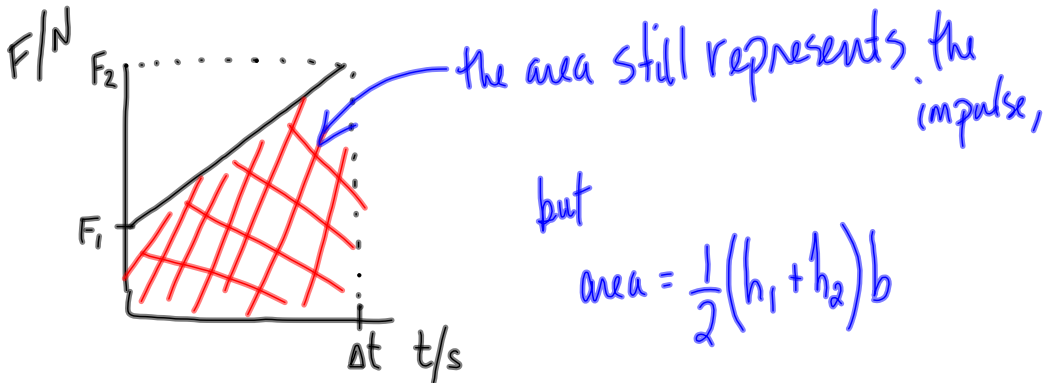 F/N
F₂
F₁
Δt t/s
the area still represents the
impulse,
but
area = 1/2 (h₁ + h₂) b